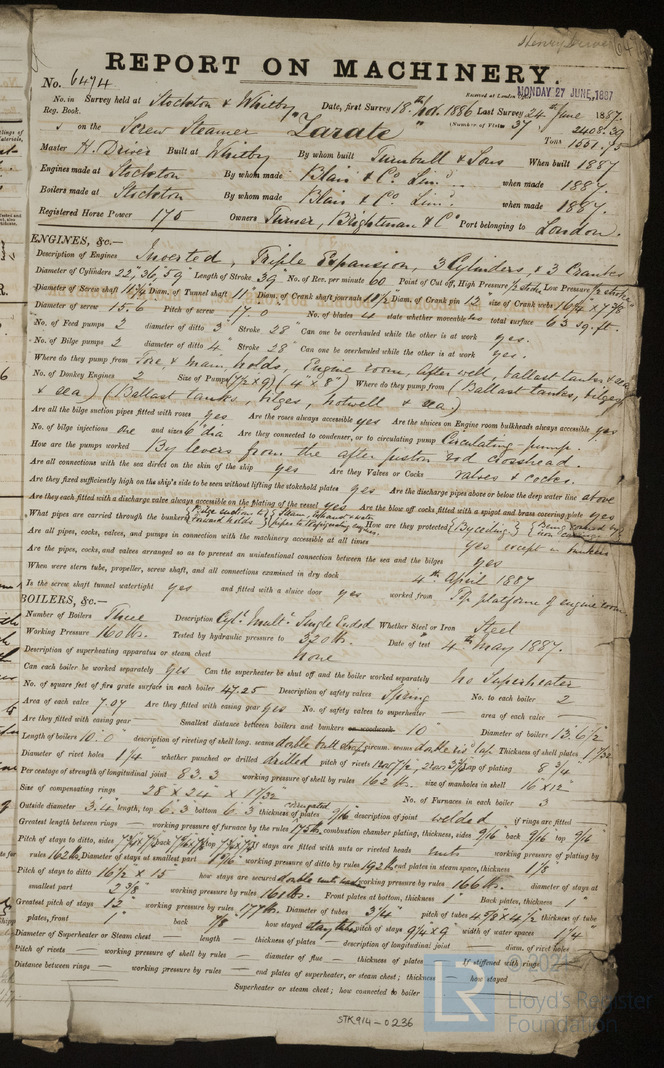 Henry Driver
REPORT ON MACHINERY.
No. 6474
Received at London Office MONDAY 27 JUNE, 1887
No. in Reg. Book. Survey held at Stockton & Whitby Date, first Survey 18th Nov. 1886 Last Survey 24th June 1887.
(Number of Visits 37
on the Screw Steamer Zarate Tons 2408.39 1551.75
Master H. Driver Built at Whitby By whom built Turnbull & Sons When built 1887
Engines made at Stockton By whom made Blair & Co. Lim. when made 1887.
Boilers made at Stockton By whom made Blair & Co. Lim. when made 1887.
Registered Horse Power 175 Owners Turner, Brightman & Co. Port belonging to London.
ENGINES, &c.—
Description of Engines Inverted, Triple Expansion, 3 Cylinders, & 3 Cranks
Diameter of Cylinders 22", 36", 59" Length of Stroke 39" No. of Rev. per minute 60 Point of Cut off, High Pressure 1/2 stroke Low Pressure 1/2 stroke
Diameter of Screw shaft 11 3/4" Diam. of Tunnel shaft 11" Diam. of Crank shaft journals 11 1/2 Diam. of Crank pin 12 size of Crank webs 16 1/4 x 7 3/8
Diameter of screw 15.6 Pitch of screw 17.0 No. of blades 4 state whether moveable no total surface 63 sq. ft.
No. of Feed pumps 2 diameter of ditto 3" Stroke 28" Can one be overhauled while the other is at work yes.
No. of Bilge pumps 2 diameter of ditto 4" Stroke 28" Can one be overhauled while the other is at work yes.
Where do they pump from Fore & main holds, Engine room, after well, ballast tanks & sea
No. of Donkey Engines 2 Size of Pumps (7 1/2 x 9) (4 x 8") Where do they pump from (Ballast tanks, bilges
& sea) (Ballast tanks, bilges, hotwell & sea)
Are all the bilge suction pipes fitted with roses yes Are the roses always accessible yes Are the sluices on Engine room bulkheads always accessible yes
No. of bilge injections one and sizes 6" dia Are they connected to condenser, or to circulating pump Circulating pump.
How are the pumps worked By levers from the after piston rod crosshead.
Are all connections with the sea direct on the skin of the ship yes Are they Valves or Cocks valves & cocks.
Are they fixed sufficiently high on the ship's side to be seen without lifting the stokehold plates yes Are the discharge pipes above or below the deep water line above
Are they each fitted with a discharge valve always accessible on the plating of the vessel yes Are the blow off cocks fitted with a spigot and brass covering plate yes
What pipes are carried through the bunkers {Bilge suction to forward holds} How are they protected {By ceiling}
Are all pipes, cocks, valves, and pumps in connection with the machinery accessible at all times yes except in bunkers
Are the pipes, cocks, and valves arranged so as to prevent an unintentional connection between the sea and the bilges yes
When were stern tube, propeller, screw shaft, and all connections examined in dry dock 4th April 1887
Is the screw shaft tunnel watertight yes and fitted with a sluice door yes worked from Top platform of engine room
BOILERS, &c.—
Number of Boilers Three Description Cyl. Mult. Single Ended Whether Steel or Iron Steel
Working Pressure 160 lbs. Tested by hydraulic pressure to 320 lbs. Date of test 4th May 1887.
Description of superheating apparatus or steam chest none
Can each boiler be worked separately yes Can the superheater be shut off and the boiler worked separately no Superheater
No. of square feet of fire grate surface in each boiler 47.25 Description of safety valves Spring No. to each boiler 2
Area of each valve 7.07 Are they fitted with easing gear yes No. of safety valves to superheater — area of each valve —
Are they fitted with easing gear — Smallest distance between boilers and bunkers or woodwork 10" Diameter of boilers 13.6 1/2
Length of boilers 10.0 description of riveting of shell long. seams double butt straps circum. seams double riv. lap Thickness of shell plates 1 7/32
Diameter of rivet holes 1 1/4 whether punched or drilled drilled pitch of rivets Lap of plating 8 3/4
Percentage of strength of longitudinal joint 83.3 working pressure of shell by rules 162 lb. size of manholes in shell 16 x 12
Size of compensating rings 28 x 24 x 1 7/32 No. of Furnaces in each boiler 3
Outside diameter 3.4 length, top 6.3 bottom 6.3 thickness of plates corrugated 9/16 description of joint welded if rings are fitted
Greatest length between rings — working pressure of furnace by the rules 175 lb. combustion chamber plating, thickness, sides 9/16 back 9/16 top 9/16
Pitch of stays to ditto, sides back top If stays are fitted with nuts or riveted heads nuts working pressure of plating by
rules 162 lb. Diameter of stays at smallest part working pressure of ditto by rules 192 lb. end plates in steam space, thickness 1 1/8
Pitch of stays to ditto 16 1/2 x 15 how stays are secured double nuts working pressure by rules 166 lb. diameter of stays at
smallest part 2 3/8 working pressure by rules 161 lb. Front plates at bottom, thickness 1" Back plates, thickness 1"
Greatest pitch of stays 12" working pressure by rules 177 lb. Diameter of tubes 3 1/4 pitch of tubes 4 5/8 x 4 1/2 thickness of tube
plates, front 1" back 7/8 how stayed stay tubes pitch of stays 9 1/4 x 9 width of water spaces 1 1/4"
Diameter of Superheater or Steam chest — length — thickness of plates — description of longitudinal joint — diam. of rivet holes
Pitch of rivets — working pressure of shell by rules — diameter of flue — thickness of plates If stiffened with rings
Distance between rings — working pressure by rules — end plates of superheater, or steam chest; thickness — how stayed
Superheater or steam chest; how connected to boiler
STK914-0236
LR
Lloyd's Register
Foundation